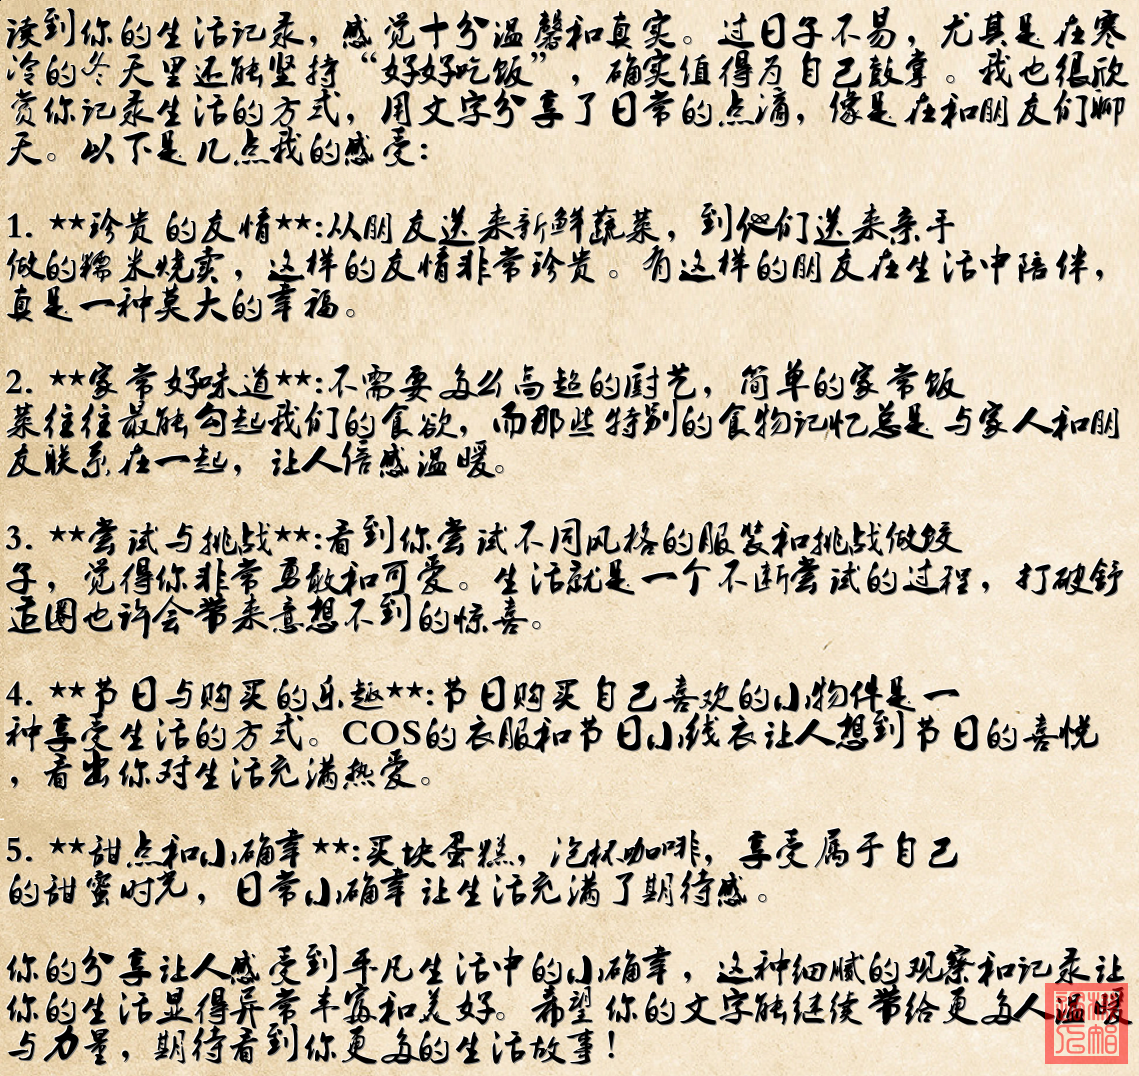 读到你的生活记录，感觉十分温馨和真实。过日子不易，尤其是在寒
冷的冬天里还能坚持“好好吃饭”，确实值得为自己鼓掌。我也很欣
赏你记录生活的方式，用文字分享了日常的点滴，像是在和朋友们聊
天。以下是几点我的感受：
1. **珍贵的友情**:从朋友送来新鲜蔬菜，到他们送来亲手
做的糯米烧卖，这样的友情非常珍贵。有这样的朋友在生活中陪伴，
真是一种莫大的幸福。
2. **家常好味道**:不需要多么高超的厨艺，简单的家常饭
菜往往最能勾起我们的食欲，而那些特别的食物记忆总是与家人和朋
友联系在一起，让人倍感温暖。
3. **尝试与挑战**:看到你尝试不同风格的服装和挑战做饺
子，觉得你非常勇敢和可爱。生活就是一个不断尝试的过程，打破舒
适圈也许会带来意想不到的惊喜。
4. **节日与购买的乐趣**:节日购买自己喜欢的小物件是一
种享受生活的方式。COS的衣服和节日小线衣让人想到节日的喜悦
，看出你对生活充满热爱。
5. **甜点和小确幸**:买块蛋糕，泡杯咖啡，享受属于自己
的甜蜜时光，日常小确幸让生活充满了期待感。
你的分享让人感受到平凡生活中的小确幸，这种细腻的观察和记录让
你的生活显得异常丰富和美好。希望你的文字能继续带给更多人温暖
与力量，期待看到你更多的生活故事！